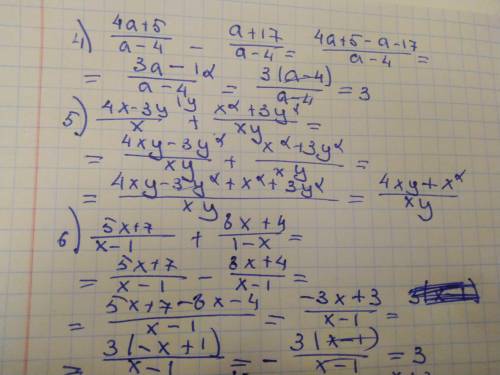 4) (4a+5)/(a-4) - (a+17)/(a-4) = (4a+5-a-17)/(a-4) =
= (3a-12)/(a-4) = (3(a-4))/(a-4) = 3
5) (4x-3y)/x ^(y) + (x²+3y²)/(xy) =
= (4xy-3y²)/(xy) + (x²+3y²)/(xy) =
= (4xy-3y²+x²+3y²)/(xy) = (4xy+x²)/(xy)
6) (5x+7)/(x-1) + (8x+4)/(1-x) =
= (5x+7)/(x-1) - (8x+4)/(x-1) =
= (5x+7-8x-4)/(x-1) = (-3x+3)/(x-1) =
= (3(-x+1))/(x-1) = - (3(x-1))/(x-1) = 3